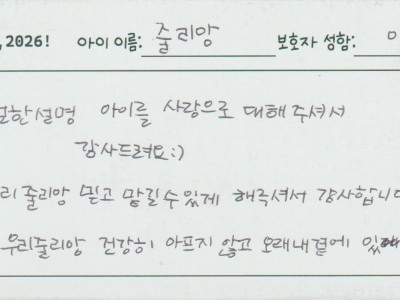 ,2026! 아이 이름: 줄리앙 보호자 성함:
한설명 아이를 사랑으로 대해주셔서
감사드려요:)
리 줄리앙 믿고 맡길수있게 해주셔서 감사합니다
우리줄리앙 건강히 아프지 않고 오래내곁에